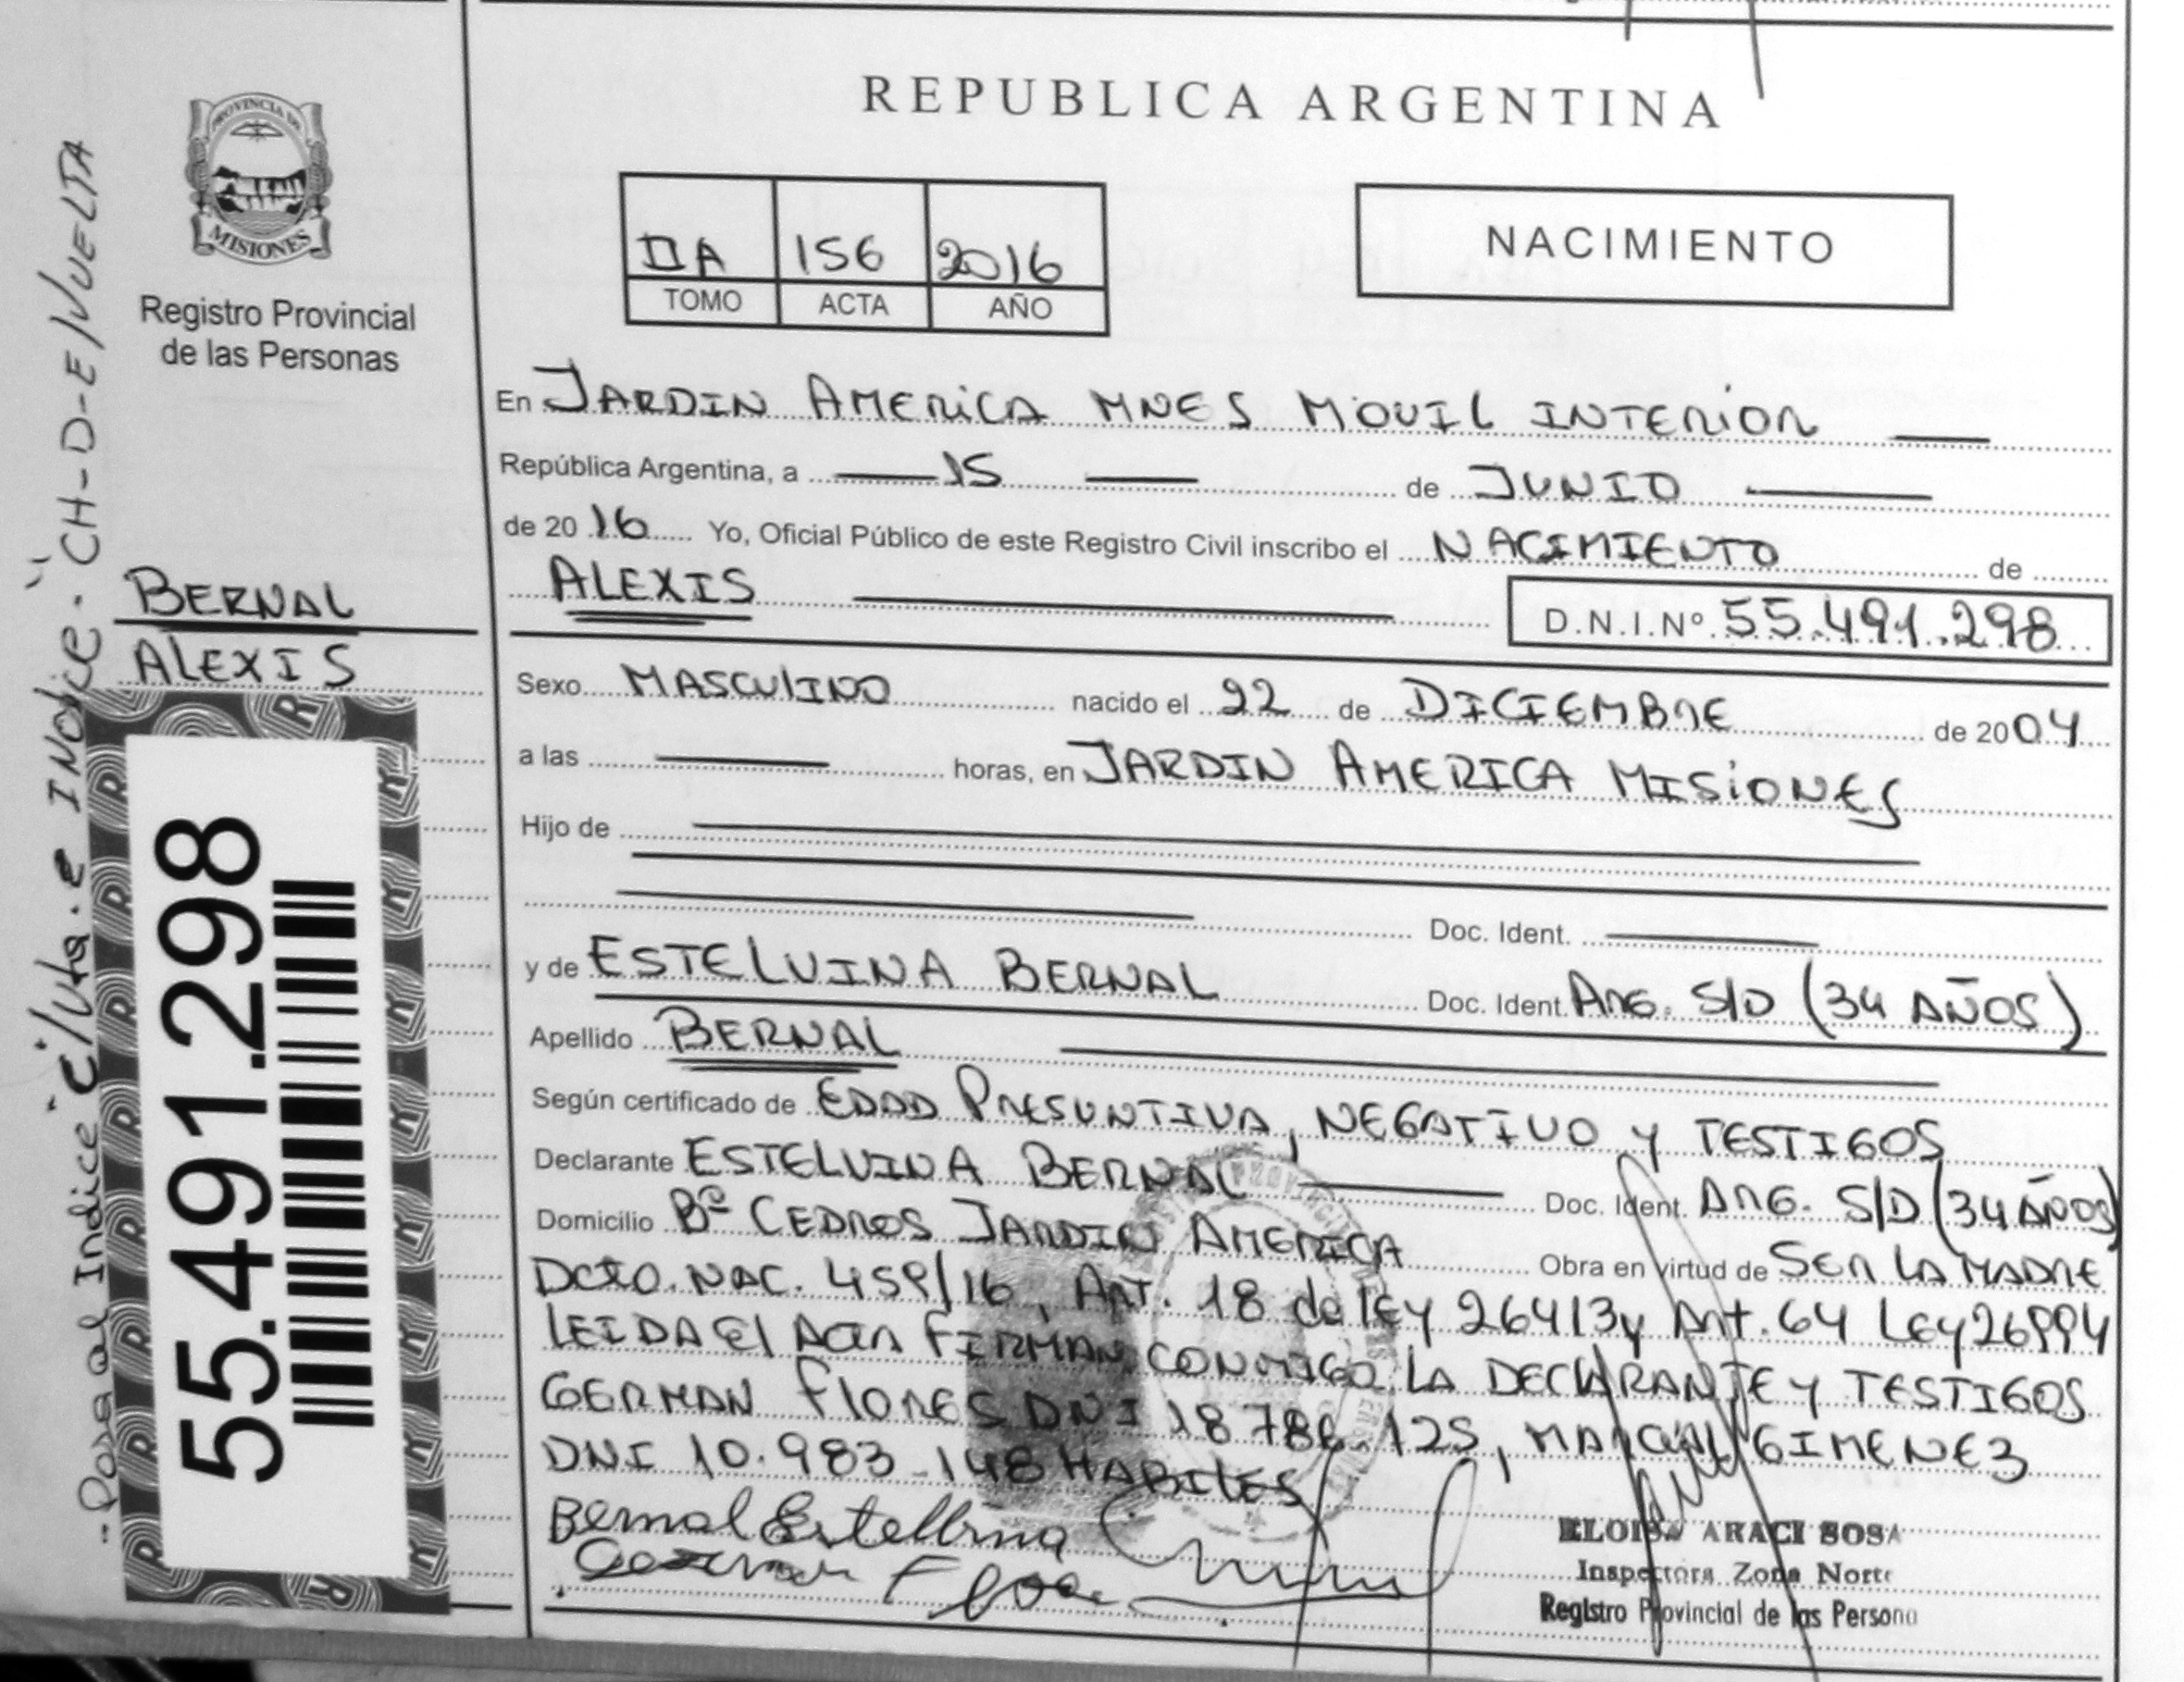 REPUBLICA ARGENTINA
PROVINCIA DE
MISIONES
Registro Provincial
de las Personas
IIA 156 2016
TOMO ACTA AÑO
NACIMIENTO
En JARDIN AMERICA MNES MOVIL INTERIOR
República Argentina, a 15 de JUNIO
de 2016 Yo, Oficial Público de este Registro Civil inscribo el NACIMIENTO de
ALEXIS D.N.I.Nº 55.491.298
BERNAL
ALEXIS
55.491.298
Sexo MASCULINO nacido el 22 de DICIEMBRE de 2004
a las horas, en JARDIN AMERICA MISIONES
Hijo de
Doc. Ident.
y de ESTELVINA BERNAL Doc. Ident. ARG. S/D (34 AÑOS)
Apellido BERNAL
Según certificado de EDAD PRESUNTIVA, NEGATIVO Y TESTIGOS
Declarante ESTELVINA BERNAL Doc. Ident. ARG. S/D (34 AÑOS)
Domicilio Bº CEDROS JARDIN AMERICA Obra en virtud de SER LA MADRE
DCTO. NAC. 459/16, ART. 18 de LEY 26413 y Art. 64 Ley 26994
LEIDA El Acta FIRMAN CONMIGO LA DECLARANTE Y TESTIGOS
GERMAN FLORES DNI 18.786.125, MARCIAL GIMENEZ
DNI 10.983.148 HABILES
Bernal Estelbina
ELOISA ARACI SOSA
Inspectora Zona Norte
Registro Provincial de las Persona
Pasa al Indice "C/Vta. E INDICE. "CH-D-E/VUELTA